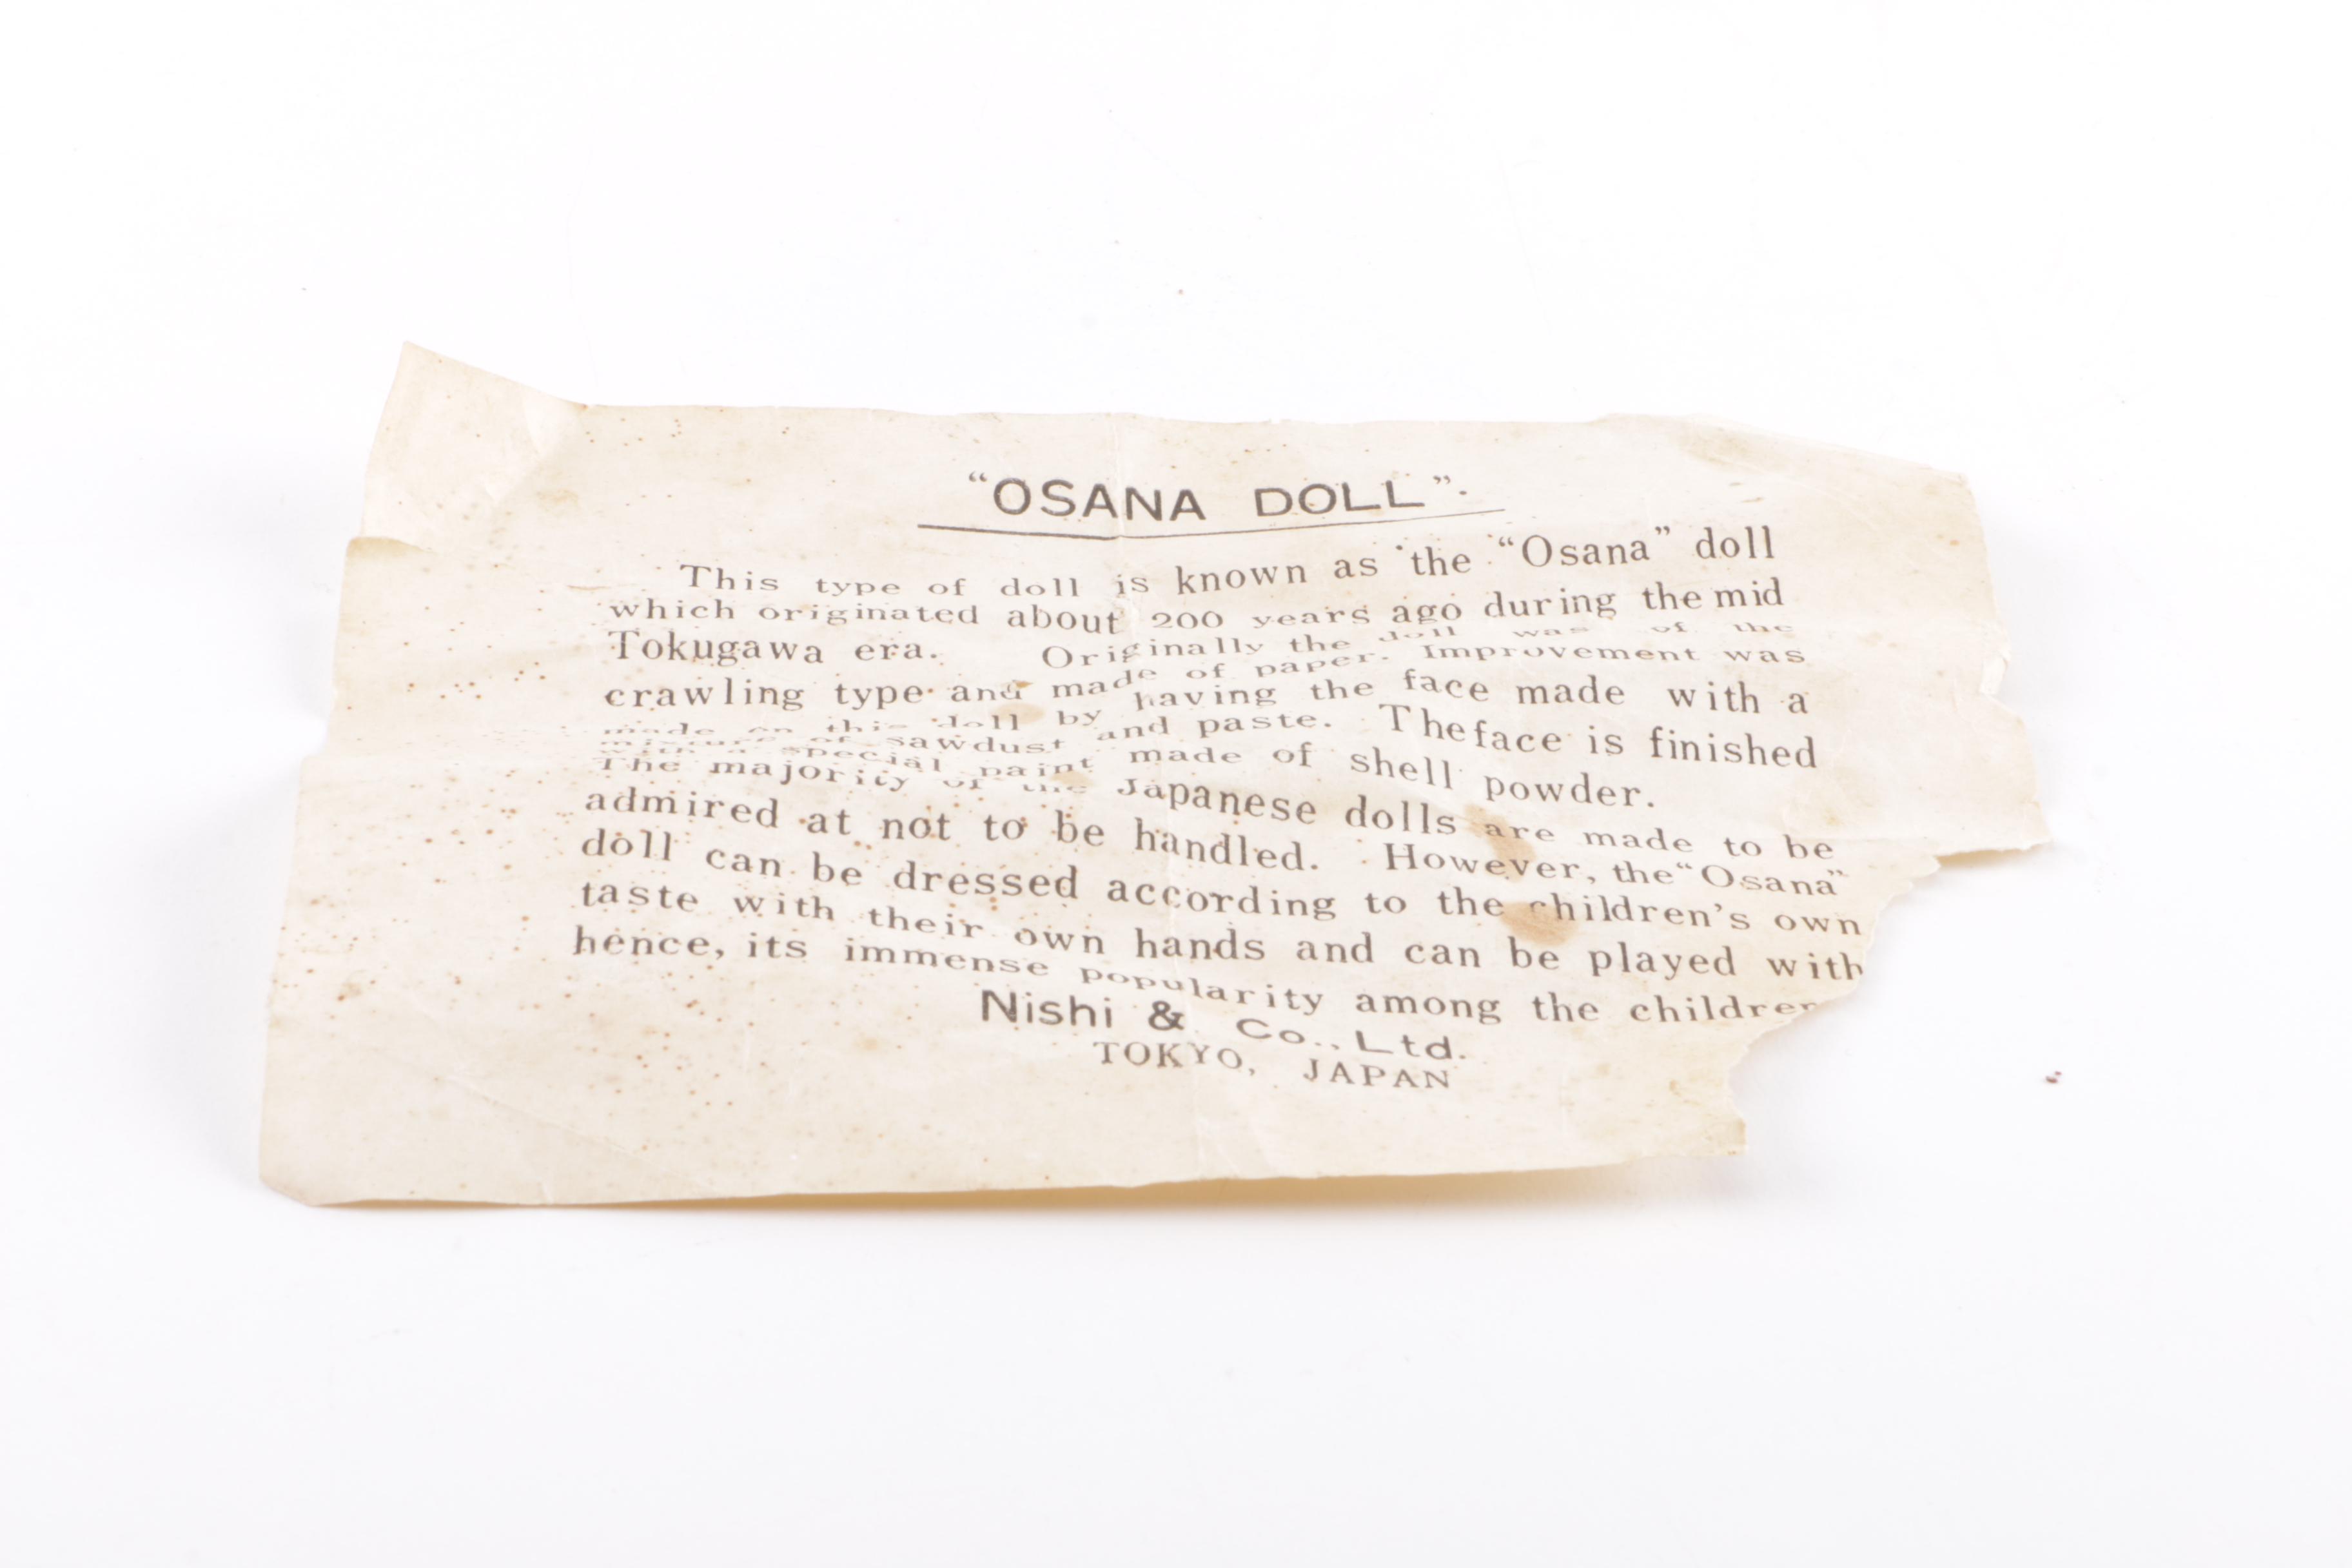 “OSANA DOLL”.
This type of doll is known as the “Osana” doll
which originated about 200 years ago during the mid
Tokugawa era. Originally the doll was of the
crawling type and made of paper. Improvement was
made on this doll by having the face made with a
mixture of sawdust and paste. The face is finished
with a special paint made of shell powder.
The majority of the Japanese dolls are made to be
admired at not to be handled. However, the “Osana”
doll can be dressed according to the children’s own
taste with their own hands and can be played with
hence, its immense popularity among the children
Nishi & Co., Ltd.
TOKYO, JAPAN